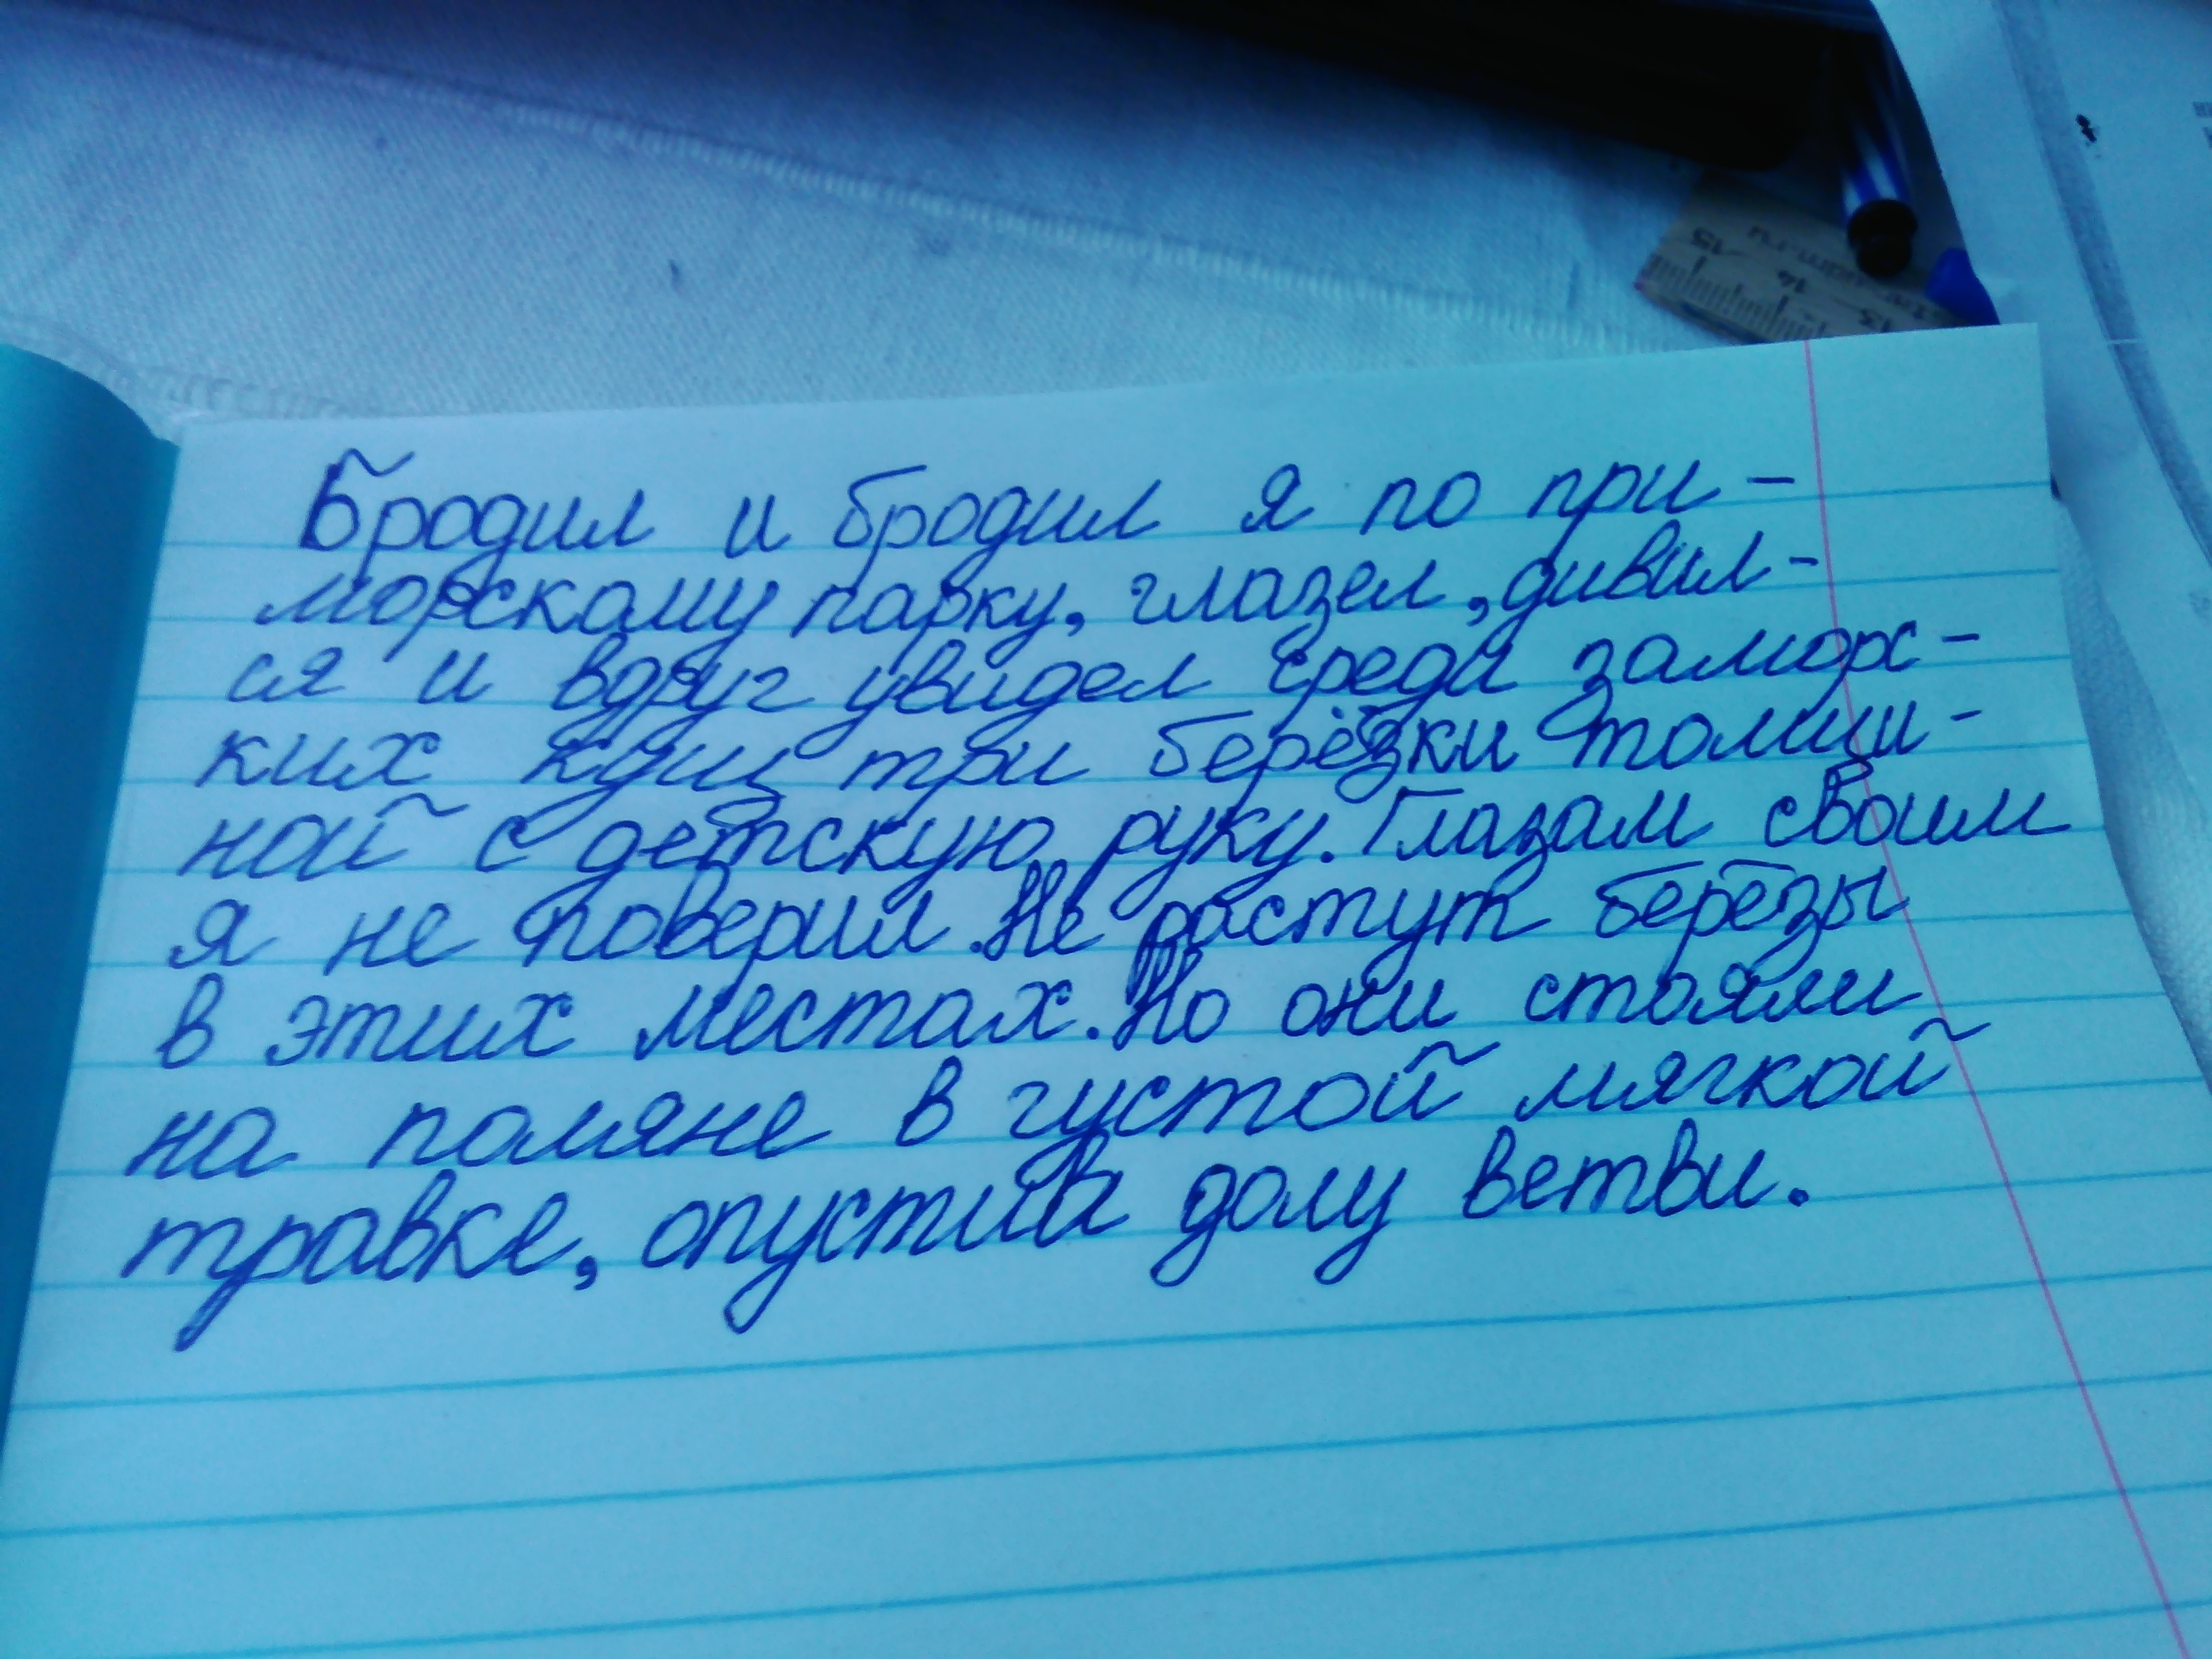 15 14 13
Бродил и бродил я по при-
морскому парку, глазел, дивил-
ся и вдруг увидел среди заморс-
ких кущ три берёзки толщи-
ной с детскую руку. Глазам своим
я не поверил. Не растут берёзы
в этих местах. Но они стояли
на поляне в густой мягкой
травке, опустив долу ветви.